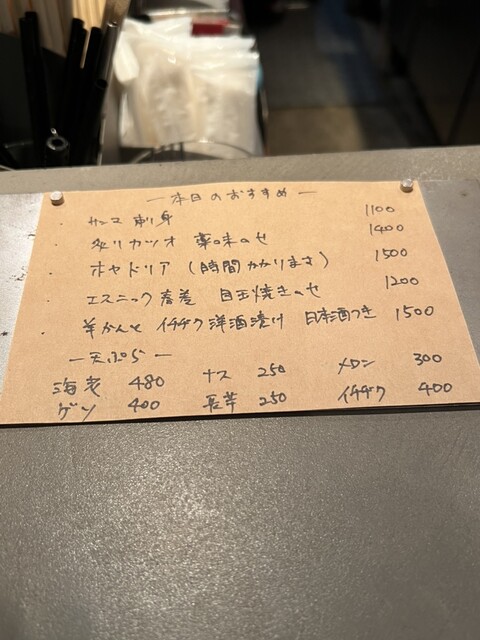 ー本日のおすすめー
・サンマ刺身 1100
・炙りカツオ 薬味のせ 1400
・ホヤドリア（時間かかります） 1500
・エスニック 目玉焼きのせ 1200
・羊かんと イチヂク洋酒漬け 日本酒つき 1500
ー天ぷらー
海老 480 ナス 250 メロン 300
ゲソ 400 長芋 250 イチヂク 400